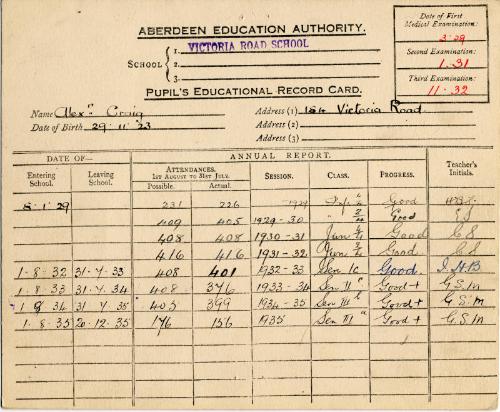 ABERDEEN EDUCATION AUTHORITY.
SCHOOL { 1. VICTORIA ROAD SCHOOL
2.
3.
PUPIL'S EDUCATIONAL RECORD CARD.
Date of First Medical Examination:
3.29
Second Examination:
1.31
Third Examination:
11.32
Name Alexr Craig Address (1) 184 Victoria Road
Date of Birth 29.11.23 Address (2)
Address (3)
DATE OF— ANNUAL REPORT.
Entering School. Leaving School. ATTENDANCES. 1ST AUGUST TO 31ST JULY. Possible. Actual. SESSION. CLASS. PROGRESS. Teacher's Initials.
8.1.29 231 226 1929 Good
409 405 1929-30 Good
408 408 1930-31 Jun Good C.S
416 416 1931-32 Jun Good C.S
1.8.32 31.7.33 408 401 1932-33 Sen 1c Good. J.H.B
1.8.33 31.7.34 408 376 1933-34 Sen II Good+ G.S.M
1.8.34 31.7.35 405 399 1934-35 Sen III Good+ G.S.M
1.8.35 20.12.35 176 156 1935 Sen III Good+ G.S.M